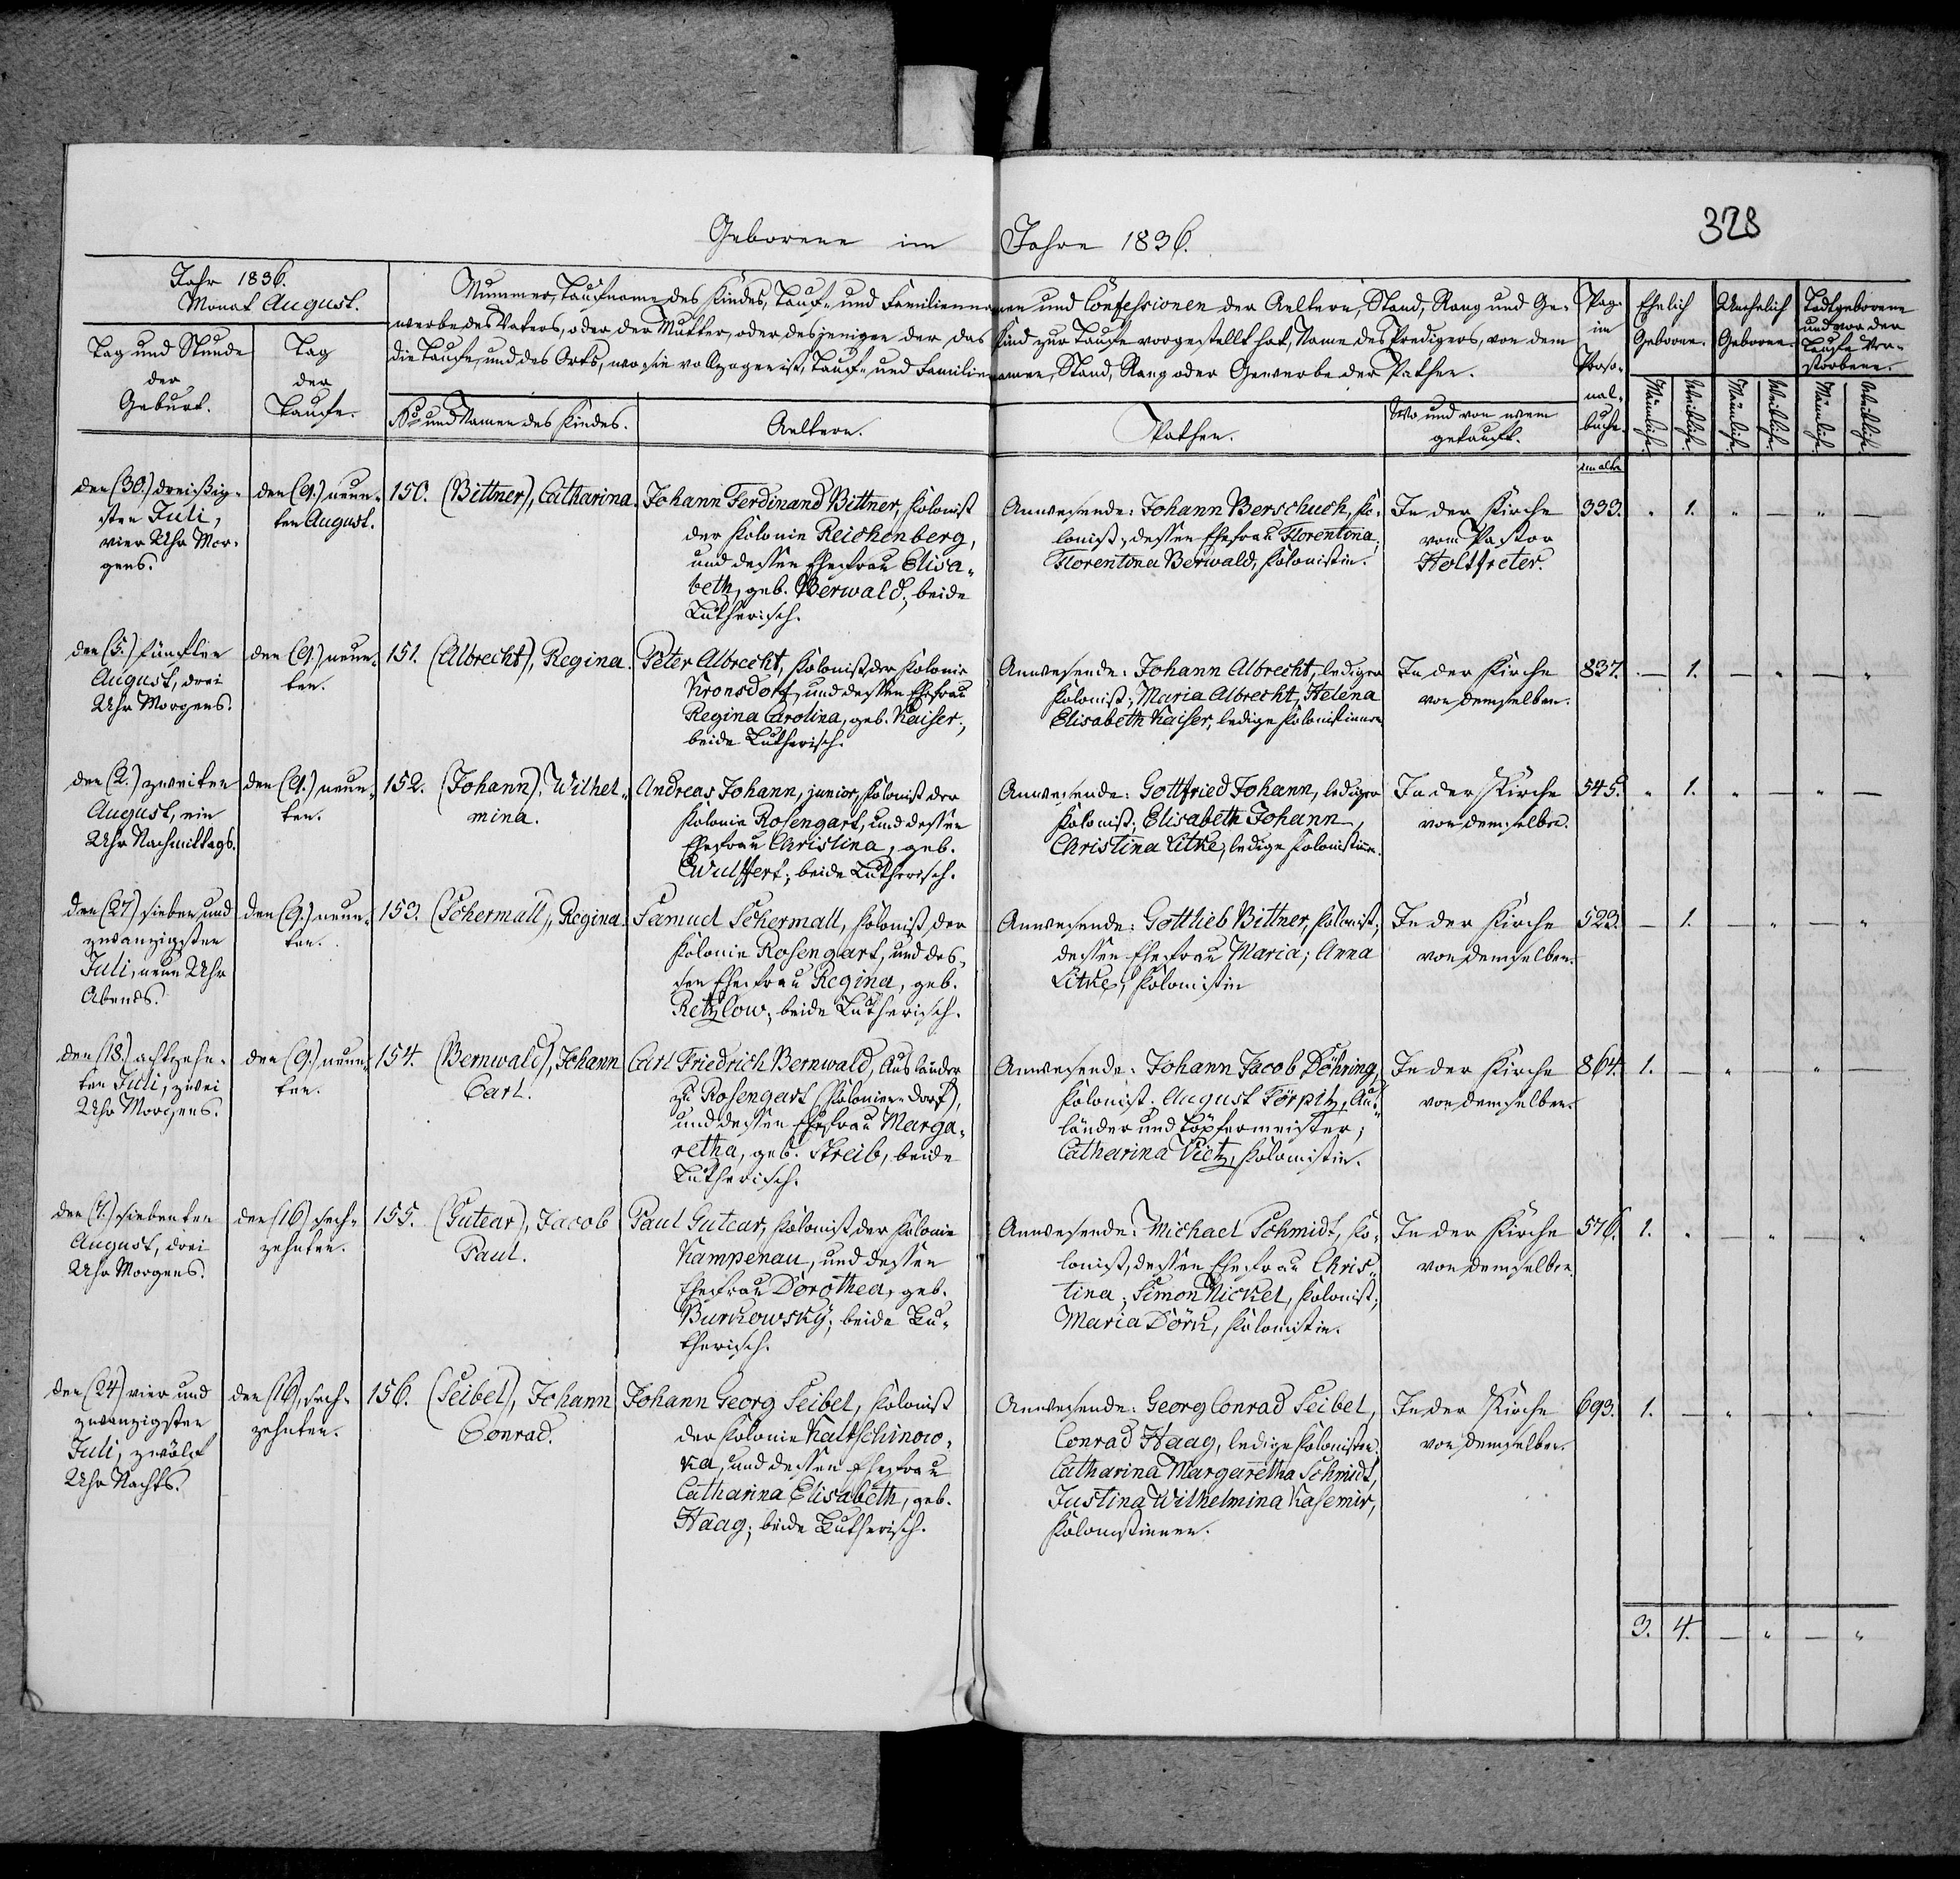 Geborene im Jahre 1836.
328
Jahr 1836.
Monat August.
Tag und Stunde
der
Geburt.
Tag
der
Taufe.
Nummer, Taufname des Kindes, Tauf- und Familiennamen und Confessionen der Aeltern, Stand, Rang und Ge-
werbe des Vaters, oder der Mutter, oder desjenigen der das Kind zur Taufe vorgestellt hat, Name des Predigers, von dem
die Taufe, und des Orts, wo sie vollzogen ist, Tauf- und Familiennamen, Stand, Rang oder Gewerbe der Pathen.
No und Namen des Kindes.
Aeltern.
Pathen.
Wo und von wem
getauft.
Pag.
im
Perso-
nal-
buche.
Ehelich
Geborne.
Unehelich
Geborene.
Todtgeborene
und vor der
Taufe Ver-
storbene.
Männliche.
Weibliche.
Männliche.
Weibliche.
Männliche.
Weibliche.
den (30.) dreißig-
sten Juli,
vier Uhr Mor-
gens.
den (9.) neun-
ten August.
150. (Bittner), Catharina.
Johann Ferdinand Bittner, Kolonist
der Kolonie Reichenberg,
und dessen Ehefrau Elisa-
beth, geb. Berwald; beide
Lutherisch.
Anwesende: Johann Berschuch, Ko-
lonist, dessen Ehefrau Florentina;
Florentina Berwald, Kolonistin.
In der Kirche
vom Pastor
Holtfreter.
im alten
333. " 1. " — " —
den (5.) fünften
August, drei
Uhr Morgens.
den (9.) neun-
ten.
151. (Albrecht), Regina.
Peter Albrecht, Kolonist der Kolonie
Kronsdorf, und dessen Ehefrau
Regina Carolina, geb. Kaiser;
beide Lutherisch.
Anwesende: Johann Albrecht, lediger
Kolonist; Maria Albrecht, Helena
Elisabeth Kaiser, ledige Kolonistinnen
In der Kirche
von demselben.
837. — 1. — " — "
den (2.) zweiten
August, ein
Uhr Nachmittags.
den (9.) neun-
ten.
152. (Johann), Wilhel-
mina.
Andreas Johann, junior, Kolonist der
Kolonie Rosengart, und dessen
Ehefrau Christina, geb.
Wulffert; beide Lutherisch.
Anwesende: Gottfried Johann, lediger
Kolonist; Elisabeth Johann,
Christina Litke, ledige Kolonistinnen.
In der Kirche
von demselben.
545. " 1. " — " —
den (27) sieben und
zwanzigsten
Juli, neun Uhr
Abends.
den (9.) neun-
ten.
153. (Schermall), Regina.
Samuel Schermall, Kolonist der
Kolonie Rosengart, und des-
sen Ehefrau Regina, geb.
Retzlow; beide Lutherisch.
Anwesende: Gottlieb Bittner, Kolonist;
dessen Ehefrau Maria; Anna
Litke, Kolonistin
In der Kirche
von demselben.
523. — 1. — " — "
den (18.) achtzehn-
ten Juli, zwei
Uhr Morgens.
den (9.) neun-
ten.
154. (Bernwald), Johann
Carl.
Carl Friedrich Bernwald, Ausländer
zu Rosengart (Kolonien-Dorf),
und dessen Ehefrau Marga-
retha, geb. Streib, beide
Lutherisch.
Anwesende: Johann Jacob Döhring,
Kolonist. August Törpitz, Aus-
länder und Töpfermeister;
Catharina Vietz, Kolonistin.
In der Kirche
von demselben.
864. 1. — " — " —
den (7.) siebenten
August, drei
Uhr Morgens.
den (16) sech-
zehnten.
155. (Gutear), Jacob
Paul.
Paul Gutear, Kolonist der Kolonie
Kampenau, und dessen
Ehefrau Dorothea, geb.
Burkowsky; beide Lu-
therisch.
Anwesende: Michael Schmidt, Ko-
lonist, dessen Ehefrau Chris-
tina; Simon Nickel, Kolonist;
Maria Dörk, Kolonistin.
In der Kirche
von demselben.
576. 1. " — " — "
den (24) vier und
zwanzigsten
Juli, zwölf
Uhr Nachts.
den (16), sech-
zehnten.
156. (Seibel), Johann
Conrad.
Johann Georg Seibel, Kolonist
der Kolonie Kaltschinow-
ka, und dessen Ehefrau
Catharina Elisabeth, geb.
Haag; beide Lutherisch.
Anwesende: Georg Conrad Seibel,
Conrad Haag, ledige Kolonisten.
Catharina Margaretha Schmidt,
Justina Wilhelmina Kasemir,
Kolonistinnen.
In der Kirche
von demselben.
693. 1. — " — " —
3. 4. — " — "